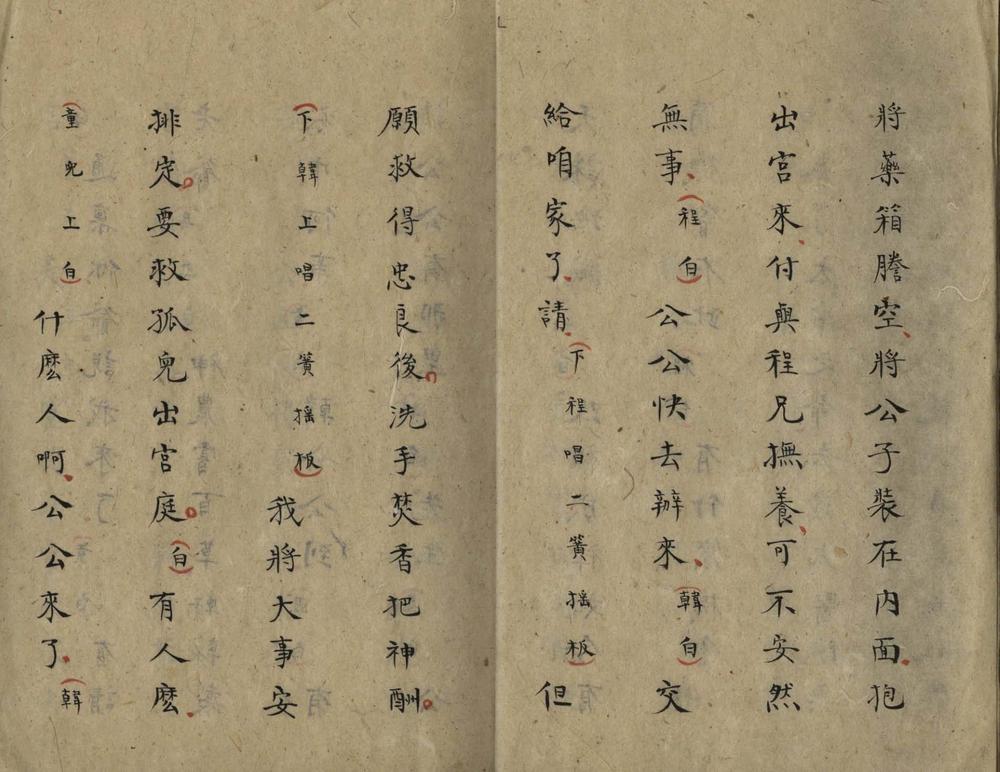 將藥箱謄空、將公子裝在內面、抱
出宮來、付與程兄撫養、可不安然
無事、(程白)公公快去辦來、(韓白)交
給咱家了、請、(下程唱二簧搖板)但
願救得忠良後。洗手焚香把神酬。
(下韓上唱二簧搖板)我將大事安
排定。要救孤兒出宮庭。(白)有人麼、
(童兒上白)什麼人啊、公公來了、(韓